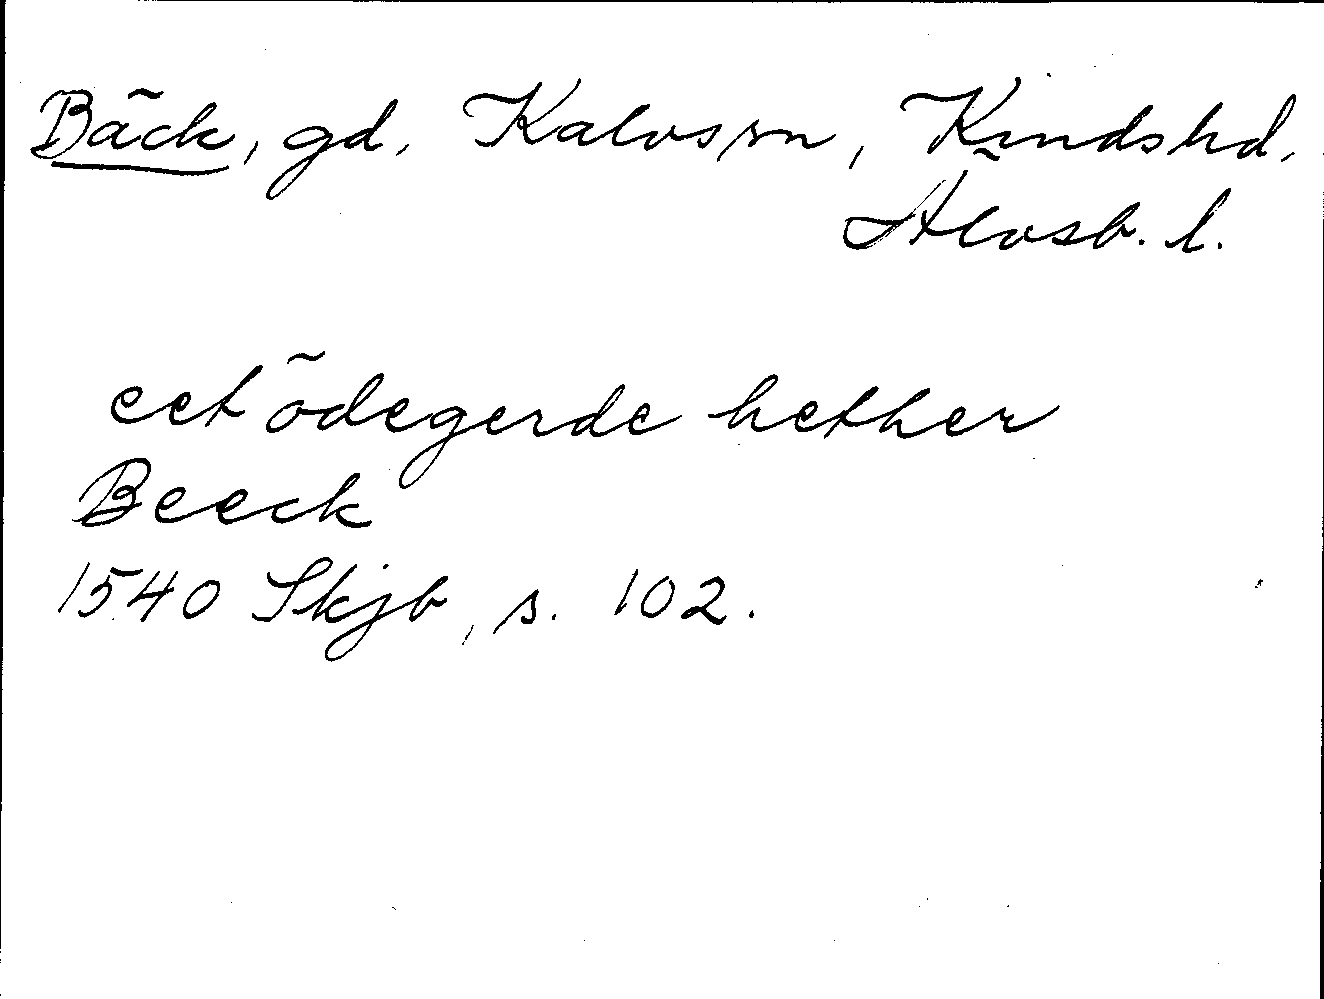 Bäck, gd, Kalvs sn, Kindshd,
Älvsb. l.
eet ödegerde hether
Beeck
1540 Skjb, s. 102.